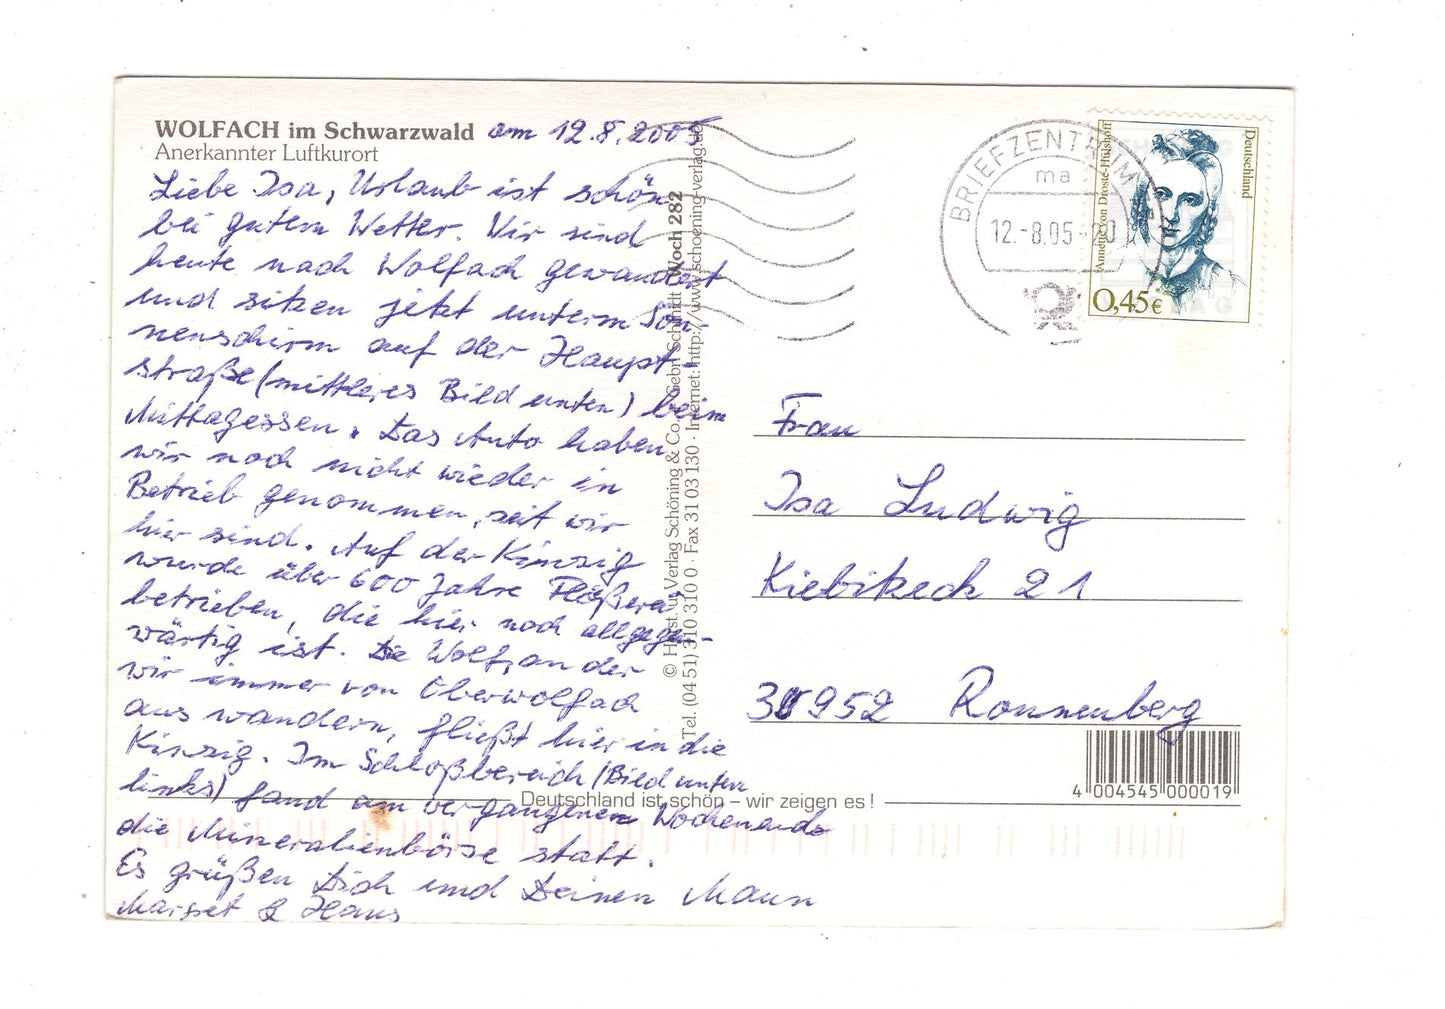 WOLFACH im Schwarzwald am 12.8.2005
Anerkannter Luftkurort
Liebe Isa, Urlaub ist schön
bei gutem Wetter. Wir sind
heute nach Wolfach gewandert
und sitzen jetzt unterm Son-
nenschirm auf der Haupt-
straße (mittleres Bild unten) beim
Mittagessen. Das Auto haben
wir noch nicht wieder in
Betrieb genommen, seit wir
hier sind. Auf der Kinzig
wurde über 600 Jahre Flößerei
betrieben, die hier noch allgegen-
wärtig ist. Die Wolf, an der
wir immer von Oberwolfach
aus wandern, fließt hier in die
Kinzig. Im Schloßbereich (Bild unten
links) fand am vergangenen Wochenende
die Mineralienbörse statt.
Es grüßen Dich und Deinen Mann
& Hans
Deutschland ist schön – wir zeigen es!
© Horst u. Verlag Schöning & Co. · Gebr. Schmidt Woch 282
Tel. (04 51) 310 310 0 · Fax 31 03 130 · Internet: http://www.schoening-verlag.de
BRIEFZENTRUM
ma
12.-8.05-20
Annette von Droste-Hülshoff
Deutschland
0,45€
Frau
Isa Ludwig
Kiebikech 21
30952 Ronnenberg
4 004545 000019